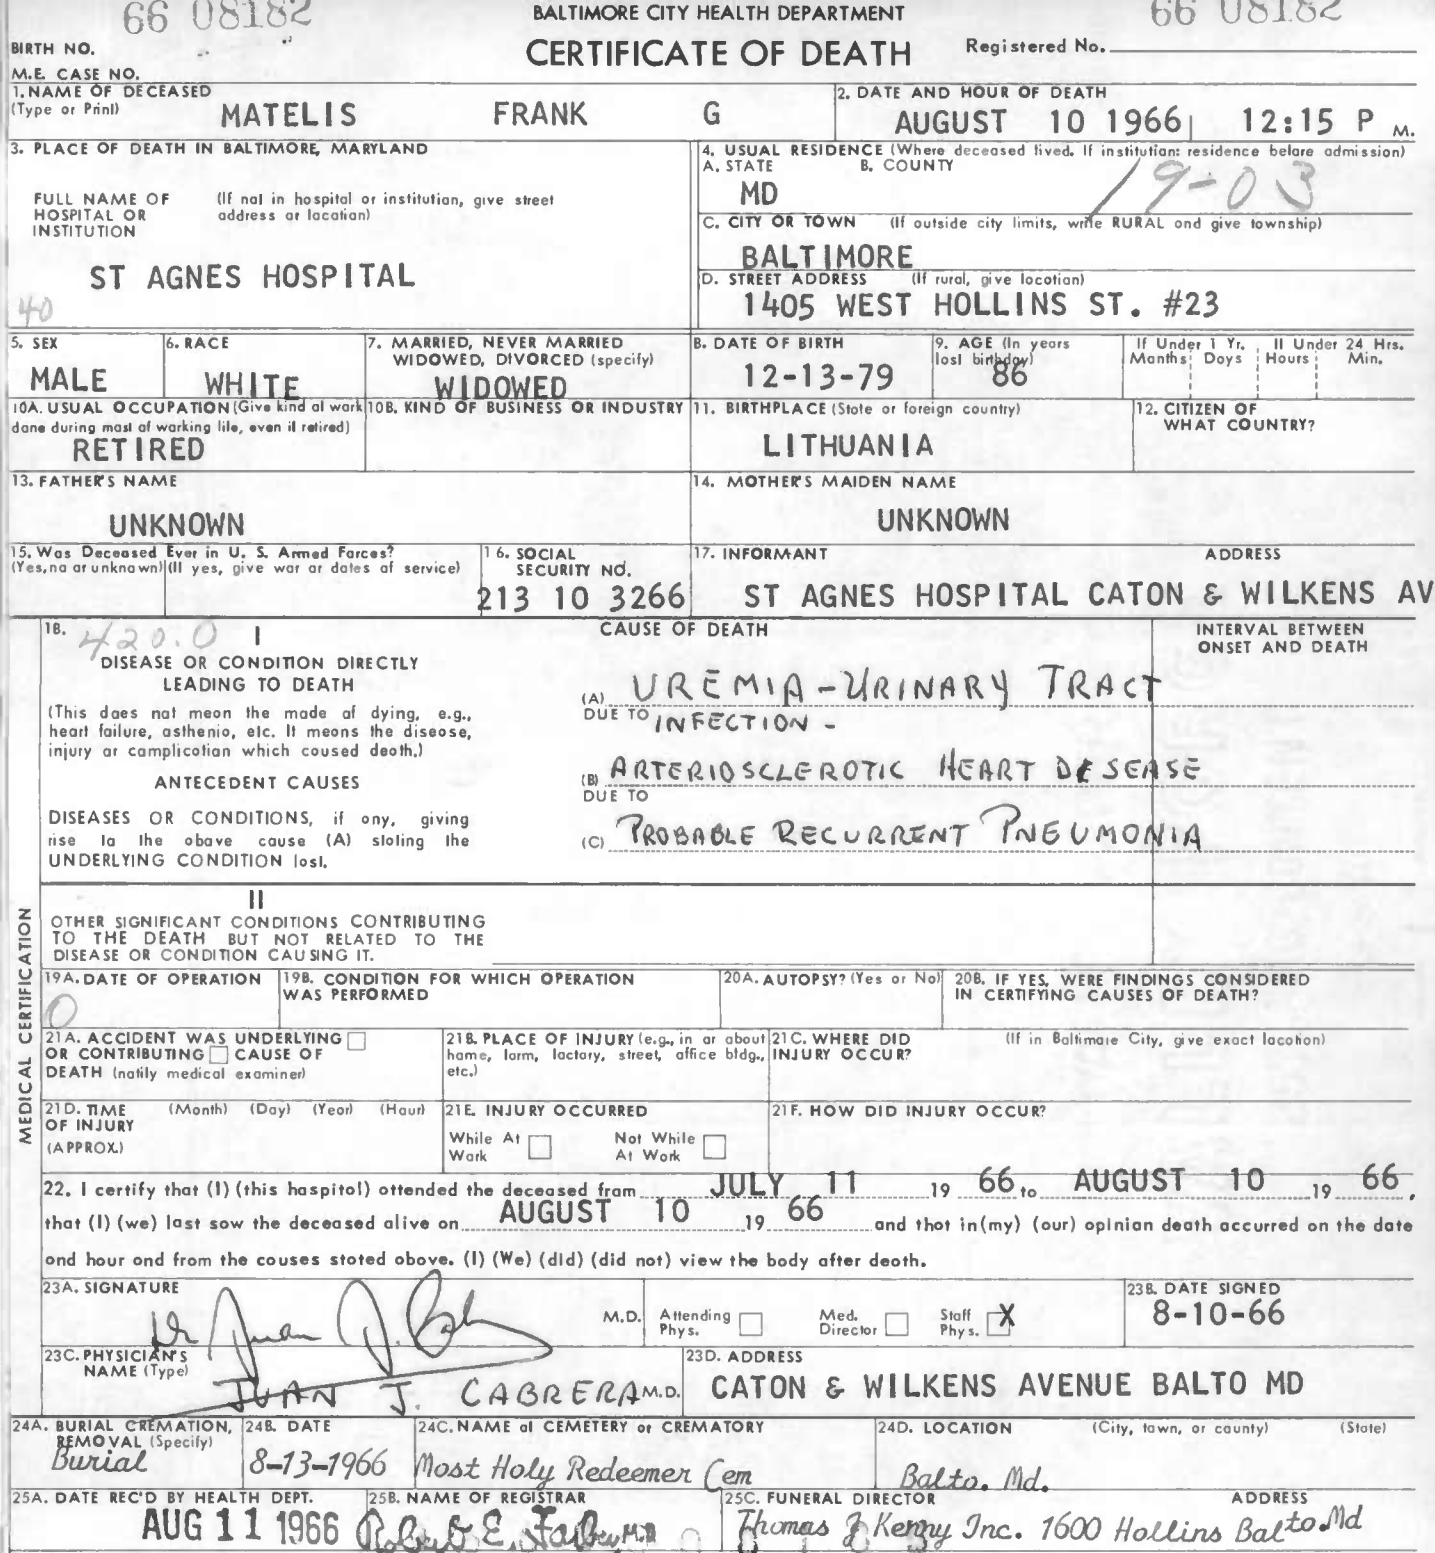 66 08182
BALTIMORE CITY HEALTH DEPARTMENT
66 08182
BIRTH NO.
CERTIFICATE OF DEATH
Registered No.
M.E. CASE NO.
1. NAME OF DECEASED
(Type or Print)
MATELIS FRANK G
2. DATE AND HOUR OF DEATH
AUGUST 10 1966 12:15 P M.
3. PLACE OF DEATH IN BALTIMORE, MARYLAND
FULL NAME OF HOSPITAL OR INSTITUTION
(If not in hospital or institution, give street address or location)
ST AGNES HOSPITAL
40
4. USUAL RESIDENCE (Where deceased lived. If institution: residence before admission)
A. STATE B. COUNTY
MD
19-03
C. CITY OR TOWN (If outside city limits, write RURAL and give township)
BALTIMORE
D. STREET ADDRESS (If rural, give location)
1405 WEST HOLLINS ST. #23
5. SEX
MALE
6. RACE
WHITE
7. MARRIED, NEVER MARRIED
WIDOWED, DIVORCED (specify)
WIDOWED
8. DATE OF BIRTH
12-13-79
9. AGE (In years last birthday)
86
If Under 1 Yr. If Under 24 Hrs.
Months Days Hours Min.
10A. USUAL OCCUPATION (Give kind of work done during most of working life, even if retired)
RETIRED
10B. KIND OF BUSINESS OR INDUSTRY
11. BIRTHPLACE (State or foreign country)
LITHUANIA
12. CITIZEN OF WHAT COUNTRY?
13. FATHER'S NAME
UNKNOWN
14. MOTHER'S MAIDEN NAME
UNKNOWN
15. Was Deceased Ever in U. S. Armed Forces?
(Yes, no or unknown) (If yes, give war or dates of service)
16. SOCIAL SECURITY NO.
213 10 3266
17. INFORMANT ADDRESS
ST AGNES HOSPITAL CATON & WILKENS AV
18. 420.0
I
DISEASE OR CONDITION DIRECTLY
LEADING TO DEATH
(This does not mean the mode of dying, e.g.,
heart failure, asthenia, etc. It means the disease,
injury or complication which caused death.)
ANTECEDENT CAUSES
DISEASES OR CONDITIONS, if any, giving
rise to the above cause (A) stating the
UNDERLYING CONDITION last.
CAUSE OF DEATH
INTERVAL BETWEEN
ONSET AND DEATH
(A) UREMIA - URINARY TRACT
DUE TO INFECTION -
(B) ARTERIOSCLEROTIC HEART DISEASE
DUE TO
(C) PROBABLE RECURRENT PNEUMONIA
II
OTHER SIGNIFICANT CONDITIONS CONTRIBUTING
TO THE DEATH BUT NOT RELATED TO THE
DISEASE OR CONDITION CAUSING IT.
MEDICAL CERTIFICATION
19A. DATE OF OPERATION
0
19B. CONDITION FOR WHICH OPERATION
WAS PERFORMED
20A. AUTOPSY? (Yes or No)
20B. IF YES, WERE FINDINGS CONSIDERED
IN CERTIFYING CAUSES OF DEATH?
21A. ACCIDENT WAS UNDERLYING
OR CONTRIBUTING CAUSE OF
DEATH (notify medical examiner)
21B. PLACE OF INJURY (e.g., in or about
home, farm, factory, street, office bldg.,
etc.)
21C. WHERE DID
INJURY OCCUR?
(If in Baltimore City, give exact location)
21D. TIME
OF INJURY
(APPROX.)
(Month) (Day) (Year) (Hour)
21E. INJURY OCCURRED
While At Work
Not While At Work
21F. HOW DID INJURY OCCUR?
22. I certify that (I) (this hospital) attended the deceased from JULY 11 19 66 to AUGUST 10 19 66,
that (I) (we) last saw the deceased alive on AUGUST 10 19 66 and that in (my) (our) opinion death occurred on the date
and hour and from the causes stated above. (I) (We) (did) (did not) view the body after death.
23A. SIGNATURE
Dr Juan J.
M.D.
Attending Phys.
Med. Director
Staff Phys. X
23B. DATE SIGNED
8-10-66
23C. PHYSICIAN'S
NAME (Type)
JUAN J. CABRERA M.D.
23D. ADDRESS
CATON & WILKENS AVENUE BALTO MD
24A. BURIAL CREMATION,
REMOVAL (Specify)
Burial
24B. DATE
8-13-1966
24C. NAME of CEMETERY or CREMATORY
Most Holy Redeemer Cem
24D. LOCATION (City, town, or county) (State)
Balto. Md.
25A. DATE REC'D BY HEALTH DEPT.
AUG 11 1966
25B. NAME OF REGISTRAR
Robert E. Farber, M.D.
25C. FUNERAL DIRECTOR ADDRESS
Thomas J Kenny Inc. 1600 Hollins Balto. Md